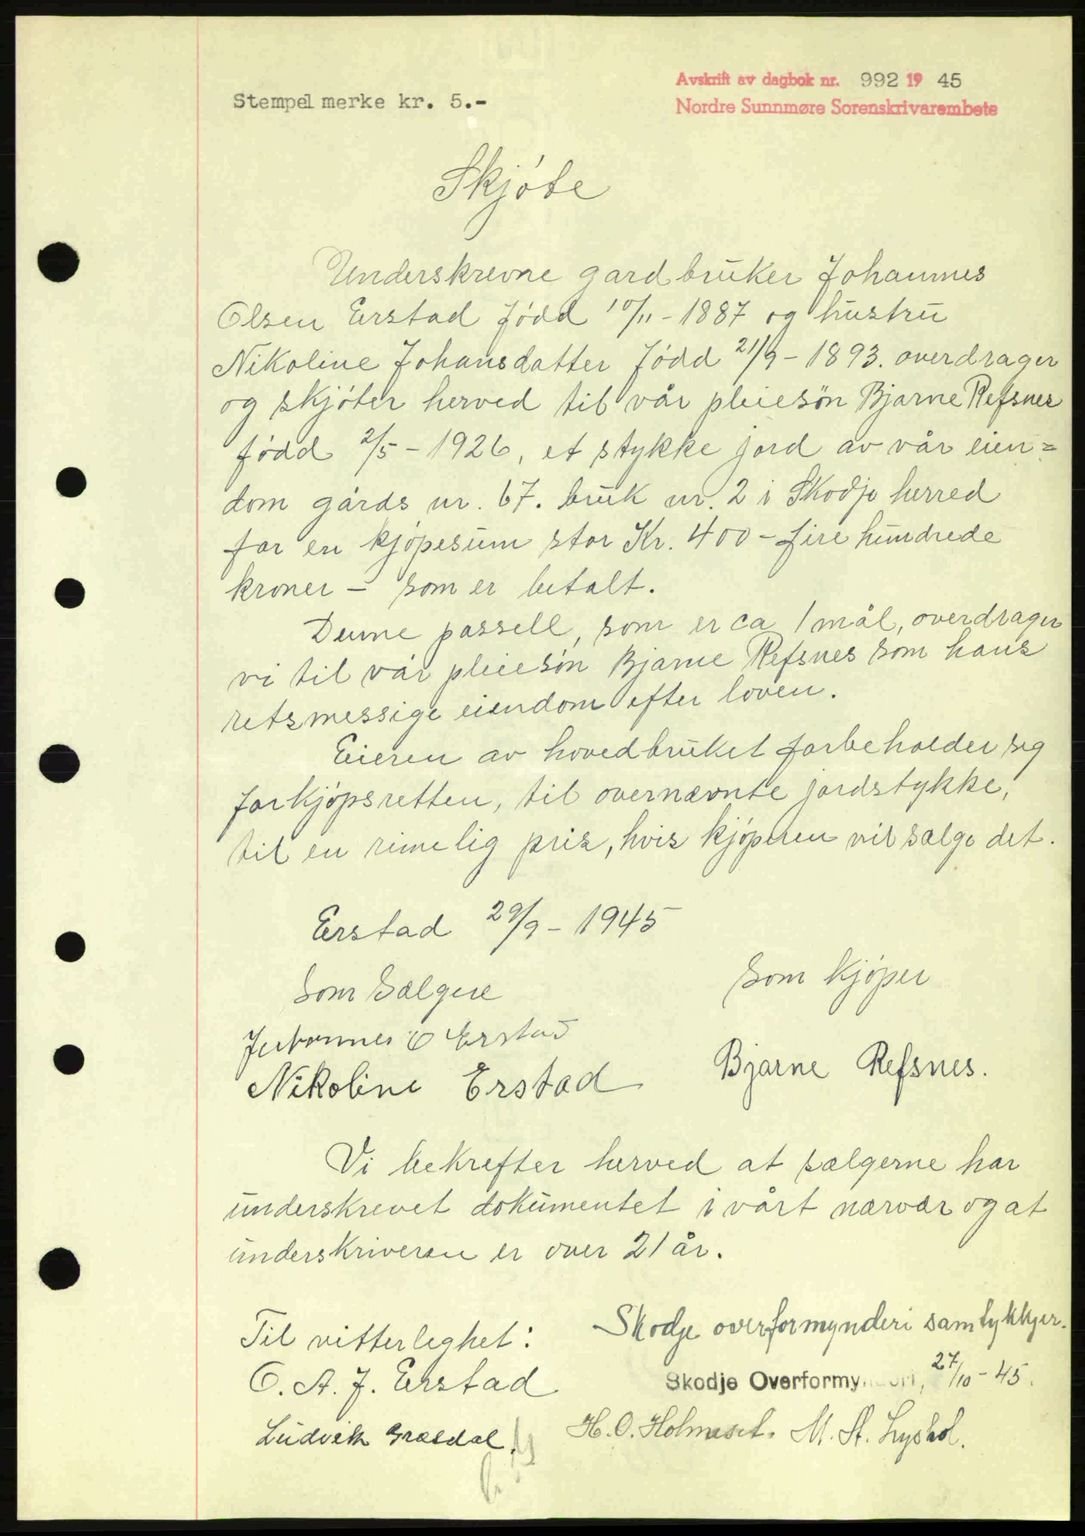 Stempelmerke kr. 5.-
Avskrift av dagbok nr. 992 19 45
Nordre Sunnmøre Sorenskrivarembete
Skjøte
Underskrevne gardbruker Johannes
Olsen Erstad født 10/11 - 1887 og hustru
Nikoline Johansdatter født 21/9 - 1893. overdrager
og skjøter herved til vår pleiesøn Bjarne Refsnes
født 2/5 - 1926, et stykke jord av vår eien=
dom gårds nr. 67. bruk nr. 2 i Skodje herred
for en kjøpesum stor Kr. 400 - fire hundrede
kroner - som er betalt.
Denne passell, som er ca 1 mål, overdrager
vi til vår pleiesøn Bjarne Refsnes som hans
retsmessige eiendom efter loven.
Eieren av hovedbruket forbeholder seg
forkjøpsretten, til overnævnte jordstykke,
til en rimelig pris, hvis kjøperen vil sælge det.
Erstad 29/9 - 1945
Som Sælgere
Som kjøper
Johannes O Erstad
Nikoline Erstad
Bjarne Refsnes.
Vi bekrefter herved at sælgerne har
underskrevet dokumentet i vårt nærvær og at
underskriveren er over 21 år.
Til vitterleghet:
Skodje overformynderi samtykkjer.
O. A. J. Erstad
Skodje Overformynderi, 27/10 - 45.
Ludvik Græsdal.
H. O. Holmeset. M. A. Lyshol.